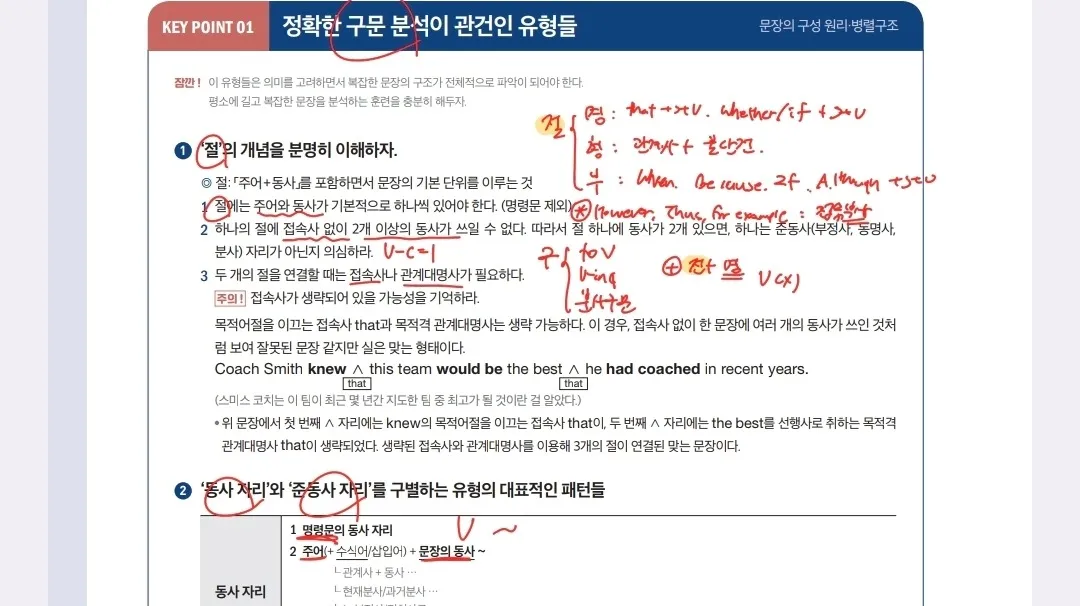 KEY POINT 01 정확한 구문 분석이 관건인 유형들 문장의 구성 원리·병렬구조
잠깐! 이 유형들은 의미를 고려하면서 복잡한 문장의 구조가 전체적으로 파악이 되어야 한다.
평소에 길고 복잡한 문장을 분석하는 훈련을 충분히 해두자.
절
명: that + s+V. whether/if + s+V
형: 관계사 + 불완전.
부: When. Because. If. Although + s+V
1 '절'의 개념을 분명히 이해하자.
◎ 절: 「주어+동사」를 포함하면서 문장의 기본 단위를 이루는 것
1 절에는 주어와 동사가 기본적으로 하나씩 있어야 한다. (명령문 제외)
* However, Thus, for example : 접속부사
2 하나의 절에 접속사 없이 2개 이상의 동사가 쓰일 수 없다. 따라서 절 하나에 동사가 2개 있으면, 하나는 준동사(부정사, 동명사,
분사) 자리가 아닌지 의심하라. V-C=1
구
to V
V-ing
분사구문
+ 전+명 V(X)
3 두 개의 절을 연결할 때는 접속사나 관계대명사가 필요하다.
주의! 접속사가 생략되어 있을 가능성을 기억하라.
목적어절을 이끄는 접속사 that과 목적격 관계대명사는 생략 가능하다. 이 경우, 접속사 없이 한 문장에 여러 개의 동사가 쓰인 것처
럼 보여 잘못된 문장 같지만 실은 맞는 형태이다.
Coach Smith knew ∧ this team would be the best ∧ he had coached in recent years.
that that
(스미스 코치는 이 팀이 최근 몇 년간 지도한 팀 중 최고가 될 것이란 걸 알았다.)
• 위 문장에서 첫 번째 ∧ 자리에는 knew의 목적어절을 이끄는 접속사 that이, 두 번째 ∧ 자리에는 the best를 선행사로 취하는 목적격
관계대명사 that이 생략되었다. 생략된 접속사와 관계대명사를 이용해 3개의 절이 연결된 맞는 문장이다.
2 '동사 자리'와 '준동사 자리'를 구별하는 유형의 대표적인 패턴들
동사 자리
1 명령문의 동사 자리 V ~
2 주어(+ 수식어/삽입어) + 문장의 동사 ~
└ 관계사 + 동사 …
└ 현재분사/과거분사 …